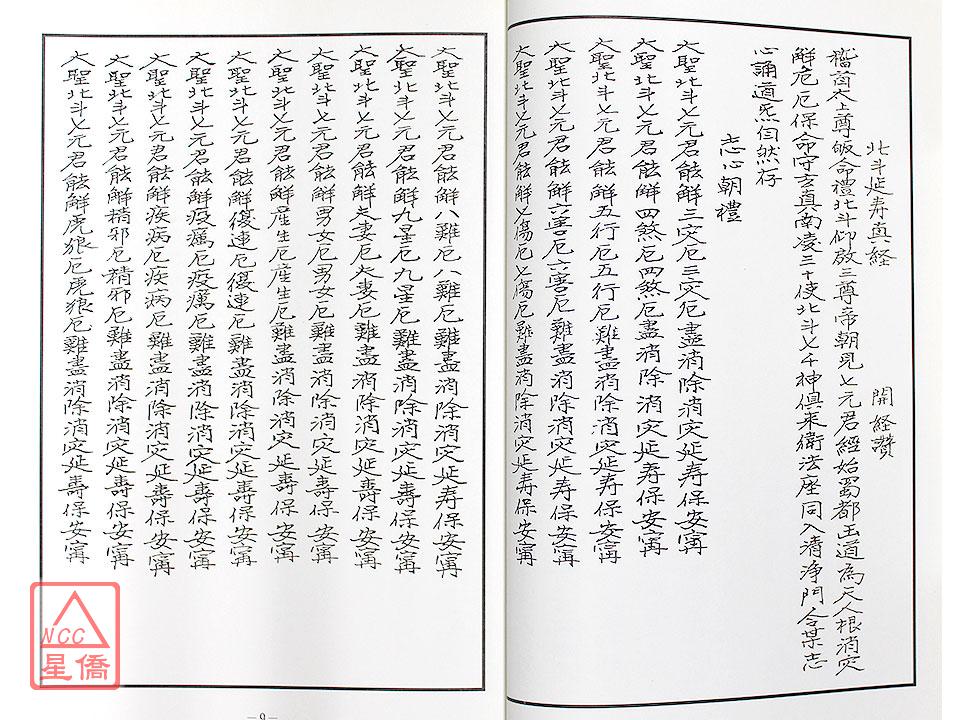 北斗延寿真経　開経讚
稽首太上尊皈命禮北斗仰啟三尊帝朝見七元君經始蜀都玉道為天人根消灾
解危厄保命守玄真南凌三十使北斗七千神俱来衛法座同入清浄門令某志
心誦道炁自然存
志心朝禮
大聖北斗七元君能解三灾厄三灾厄盡消除消灾延寿保安寗
大聖北斗七元君能解四煞厄四煞厄盡消除消灾延寿保安寗
大聖北斗七元君能解五行厄五行厄難盡消除消灾延寿保安寗
大聖北斗七元君能解六害厄六害厄難盡消除消灾延寿保安寗
大聖北斗七元君能解七傷厄七傷厄難盡消除消灾延寿保安寗
大聖北斗七元君能解八難厄八難厄難盡消除消灾延寿保安寗
大聖北斗七元君能解九星厄九星厄難盡消除消灾延壽保安寗
大聖北斗七元君能解夫妻厄夫妻厄難盡消除消灾延壽保安寗
大聖北斗七元君能解男女厄男女厄難盡消除消灾延壽保安寗
大聖北斗七元君能解産生厄産生厄難盡消除消灾延壽保安寗
大聖北斗七元君能解復連厄復連厄難盡消除消灾延壽保安寗
大聖北斗七元君能解疫癘厄疫癘厄難盡消除消灾延壽保安寗
大聖北斗七元君能解疾病厄疾病厄難盡消除消灾延壽保安寗
大聖北斗七元君能解精邪厄精邪厄難盡消除消灾延壽保安寗
大聖北斗七元君能解虎狼厄虎狼厄難盡消除消灾延壽保安寗
—9—
NCC
星僑